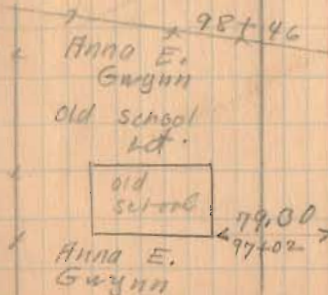 98+46
Anna E.
Gwynn
old school
Lot.
old
school
79.00
97+02
Anna E.
Gwynn